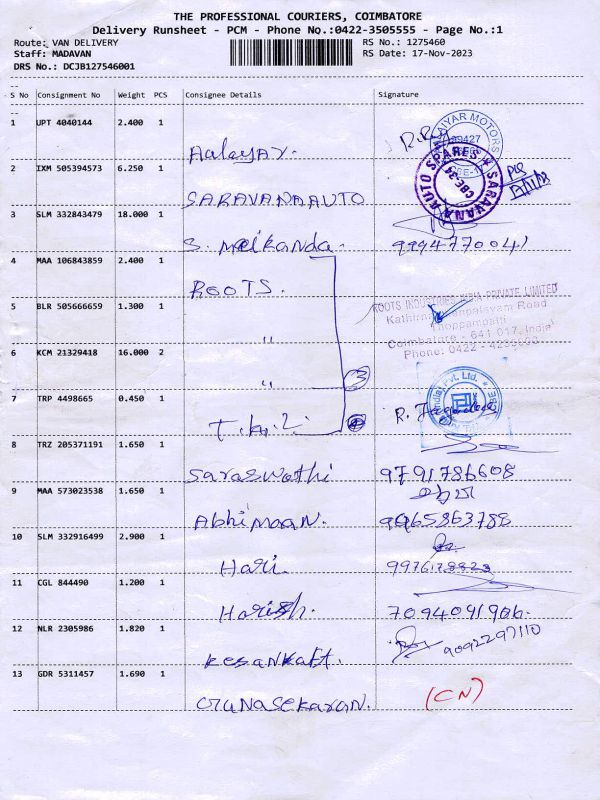 THE PROFESSIONAL COURIERS, COIMBATORE
Delivery Runsheet - PCM - Phone No.:0422-3505555 - Page No.:1
Route: VAN DELIVERY RS No.: 1275460
Staff: MADAVAN RS Date: 17-Nov-2023
DRS No.: DCJB127546001
S No Consignment No Weight PCS Consignee Details Signature
1 UPT 4040144 2.400 1
MOTORS
AUTO SPARES * SARAVANA
CBE-34
2 IXM 505394573 6.250 1 SARAVANA AUTO
3 SLM 332843479 18.000 1 S. Meikanda. 9994770041
4 MAA 106843859 2.400 1 ROOTS.
ROOTS INDUSTRIES INDIA PRIVATE LIMITED
Road
Thoppampatti
Coimbatore - 641 017, India
Phone: 0422 -
5 BLR 505666659 1.300 1 "
6 KCM 21329418 16.000 2 " 3
7 TRP 4498665 0.450 1 R.
(India) Pvt. Ltd.
8 TRZ 205371191 1.650 1 Saraswathi 9791786608
9 MAA 573023538 1.650 1 Abhimaan. 9965863788
10 SLM 332916499 2.900 1 Hari.
11 CGL 844490 1.200 1 Harish. 7094091906.
12 NLR 2305986 1.820 1 9092297110
13 GDR 5311457 1.690 1 Gunasekaran. (CN)